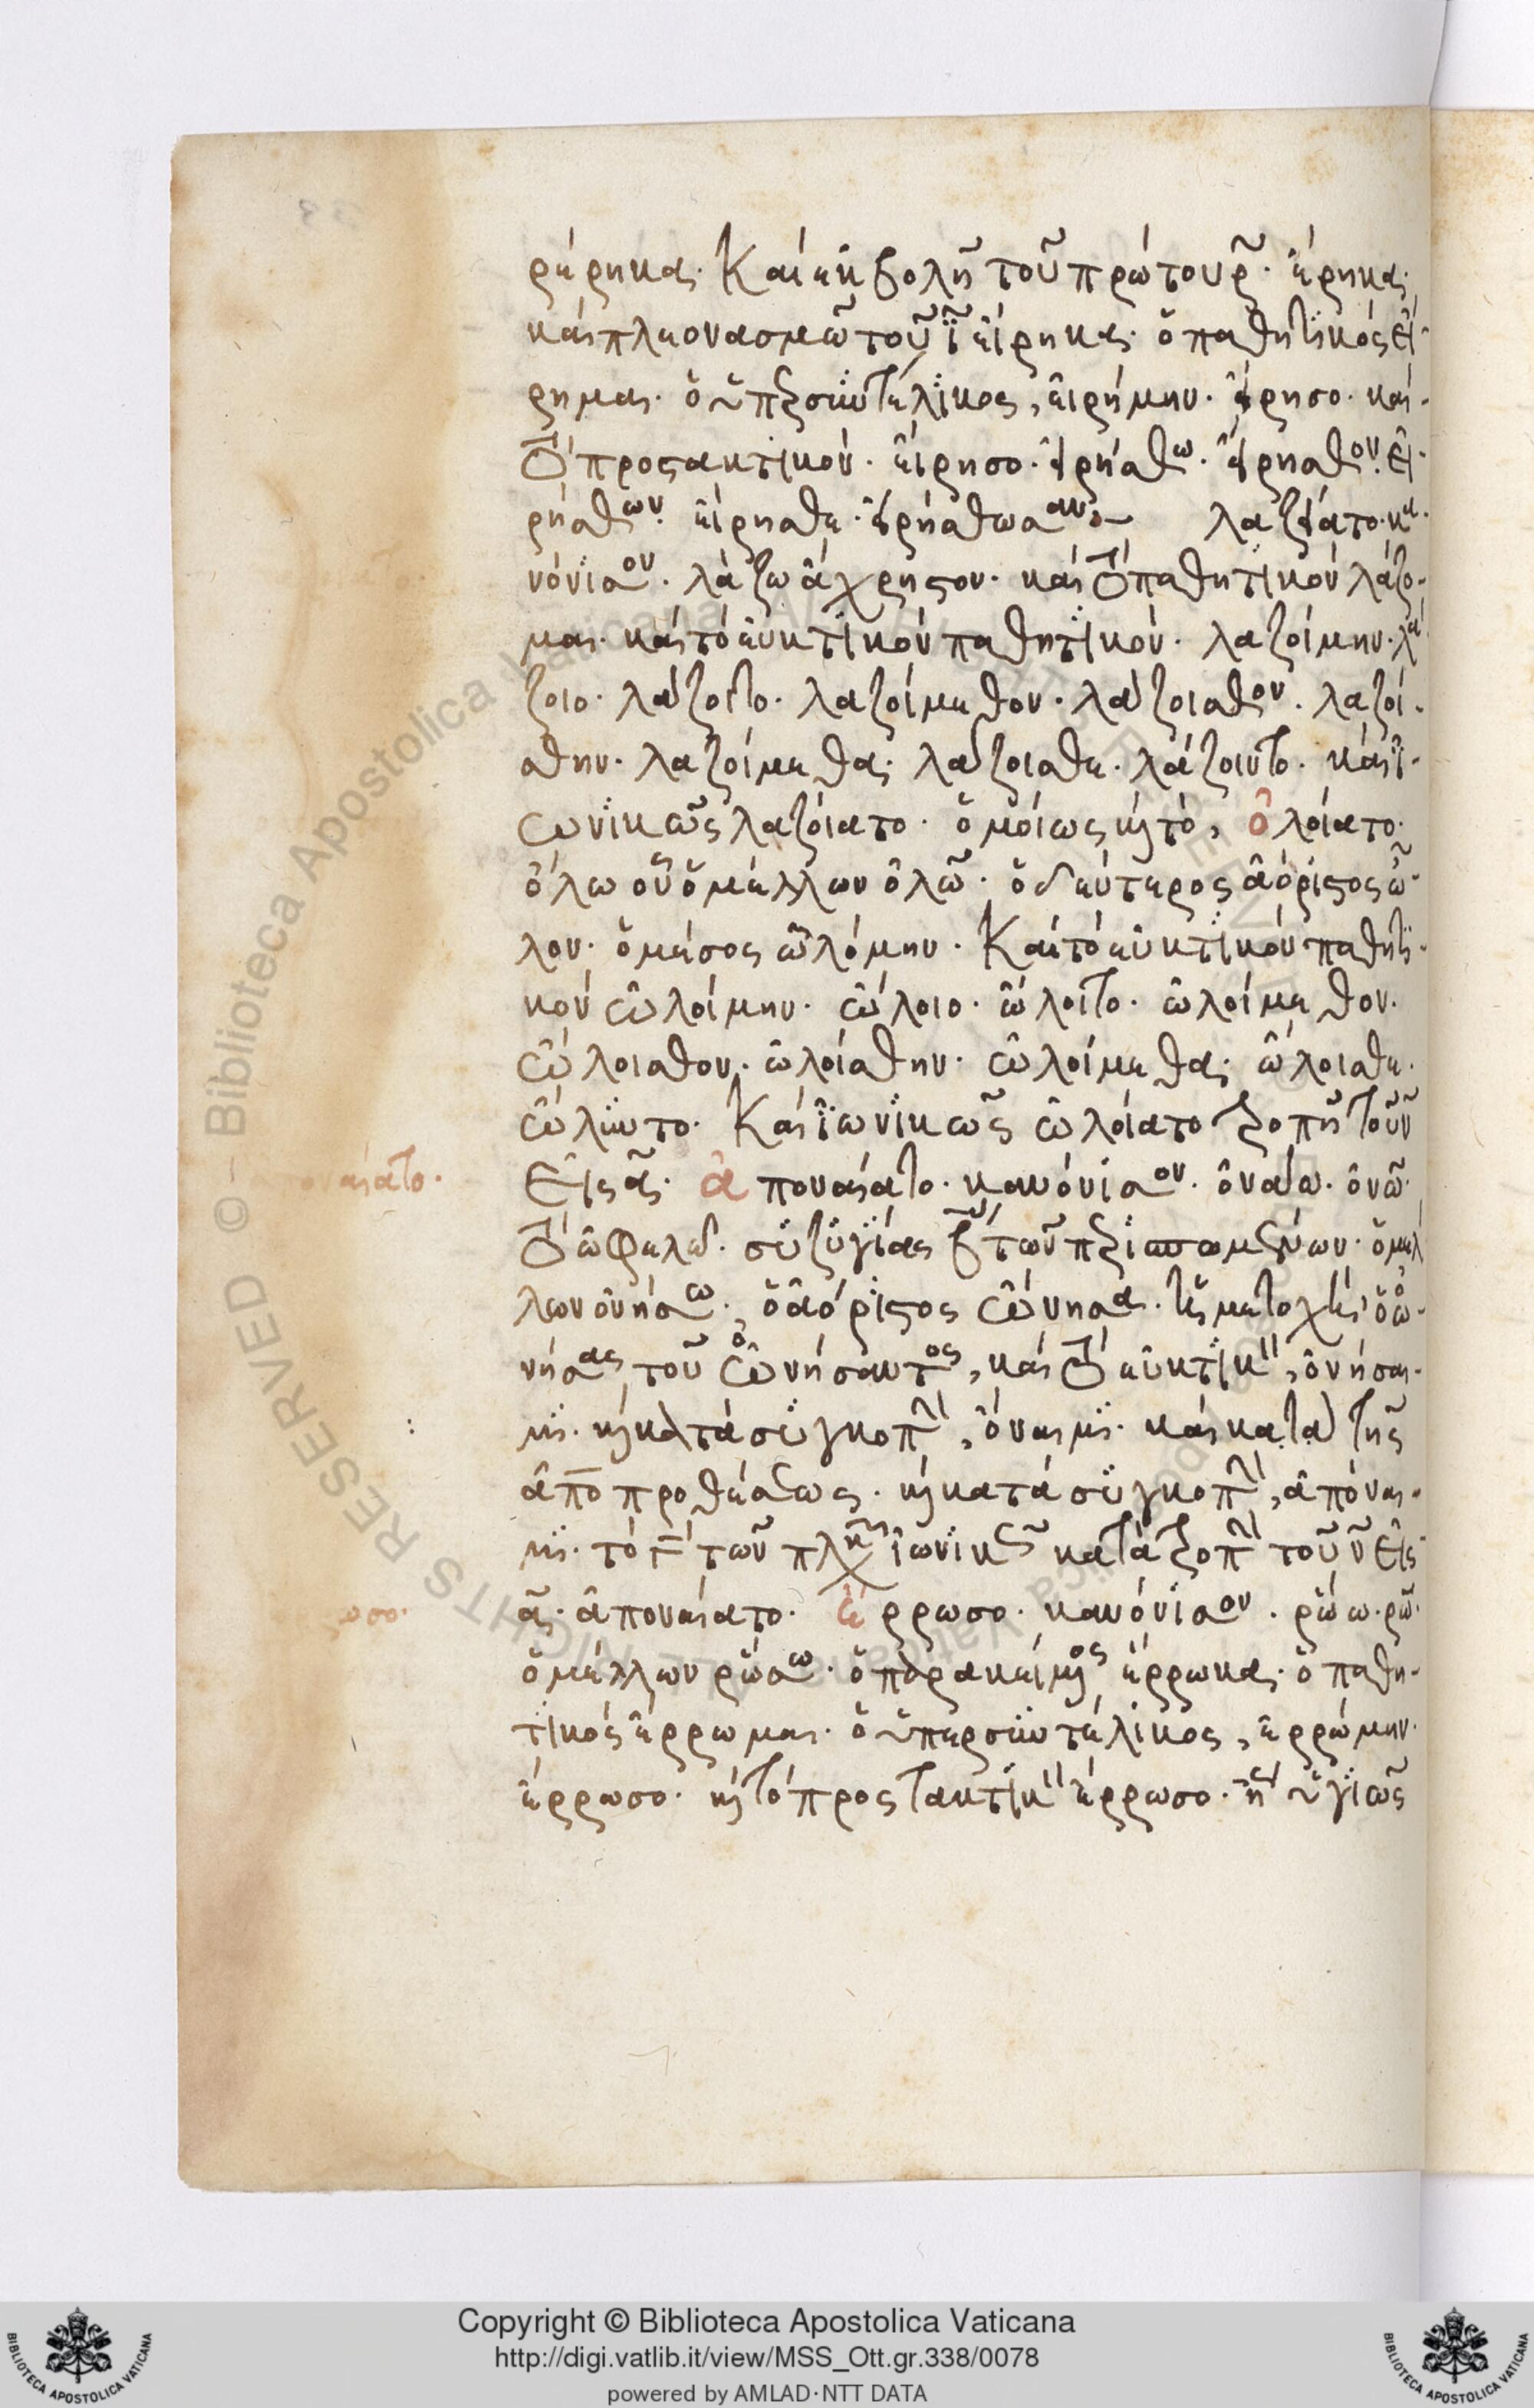 ρέρηκα· Καὶ ἐκβολῇ τοῦ πρώτου ρ̃· ἔρηκα·
καὶ πλεονασμῶ τοῦ ϊ εἴρηκα· ὁ παθητικὸς εἴ-
ρημαι· ὁ ὑπερσυντέλικος, εἰρήμην· εἴρησο· καὶ
τὸ προςακτικὸν· εἴρησο· εἰρήσθω· εἴρησθον· εἰ-
ρήσθων· εἴρησθε· εἰρήσθωσαν:~ λαζοίατο· κα-
νόνισον· λάζω ἄχρηστον· καὶ τὸ παθητικὸν λάζο-
μαι· καὶ τὸ εὐκτικὸν παθητικὸν· λαζοίμην· λά-
ζοιο· λάζοιτο· λαζοίμεθον· λάζοισθον· λαζοί-
σθην· λαζοίμεθα· λάζοισθε· λάζοιντο· καὶ ϊ-
ωνικῶς λαζοίατο· ὁμοίως καὶ τὸ, ὀλοίατο·
ὄλω οὗ ὁ μέλλων ὀλῶ· ὁ δεύτερος ἀόριστος ὦ-
λον· ὁ μέσος ὠλόμην· Καὶ τὸ εὐκτικὸν παθητι-
κὸν ὠλοίμην· ὤλοιο· ὤλοιτο· ὠλοίμεθον·
ὤλοισθον· ὠλοίσθην· ὠλοίμεθα· ὤλοισθε·
ὤλοιντο· Καὶ ϊωνικῶς ὠλοίατο τροπῇ τοῦ ν
εἰς α· ἀποναίατο· κανόνισον· ὀνάω· ὀνῶ·
τὸ ὠφελῶ· συζυγίας β τῶν περισπωμένων· ὁ μέλ-
λων ὀνήσω· ὁ ἀόριστος ὤνησα· ἡ μετοχὴ, ὁ ὠ-
νήσας τοῦ ὠνήσαντος, καὶ τὸ εὐκτικ, ὀνήσαι-
μι· καὶ κατὰ συγκοπὴ, ὄναιμι· καὶ μετὰ τῆς
ἀπὸ προθέσεως· καὶ κατὰ συγκοπὴ, ἀπόναι-
μι· τὸ γ τῶν πλη ϊωνικῶς κατὰ τροπὴ τοῦ ν εἰς
α· ἀποναίατο· ἔρρωσο· κανόνισον· ρώω· ρῶ·
ὁ μέλλων ρώσω· ὁ παρακείμενος ἔρρωκα· ὁ παθη-
τικὸς ἔρρωμαι· ὁ ὑπερσυντέλικος, ἐρρώμην·
ἔρρωσο· καὶ τὸ προςτακτικ ἔρρωσο· ὑγιῶς
οναίατο·
ωσο·
Copyright © Biblioteca Apostolica Vaticana
http://digi.vatlib.it/view/MSS_Ott.gr.338/0078
powered by AMLAD·NTT DATA